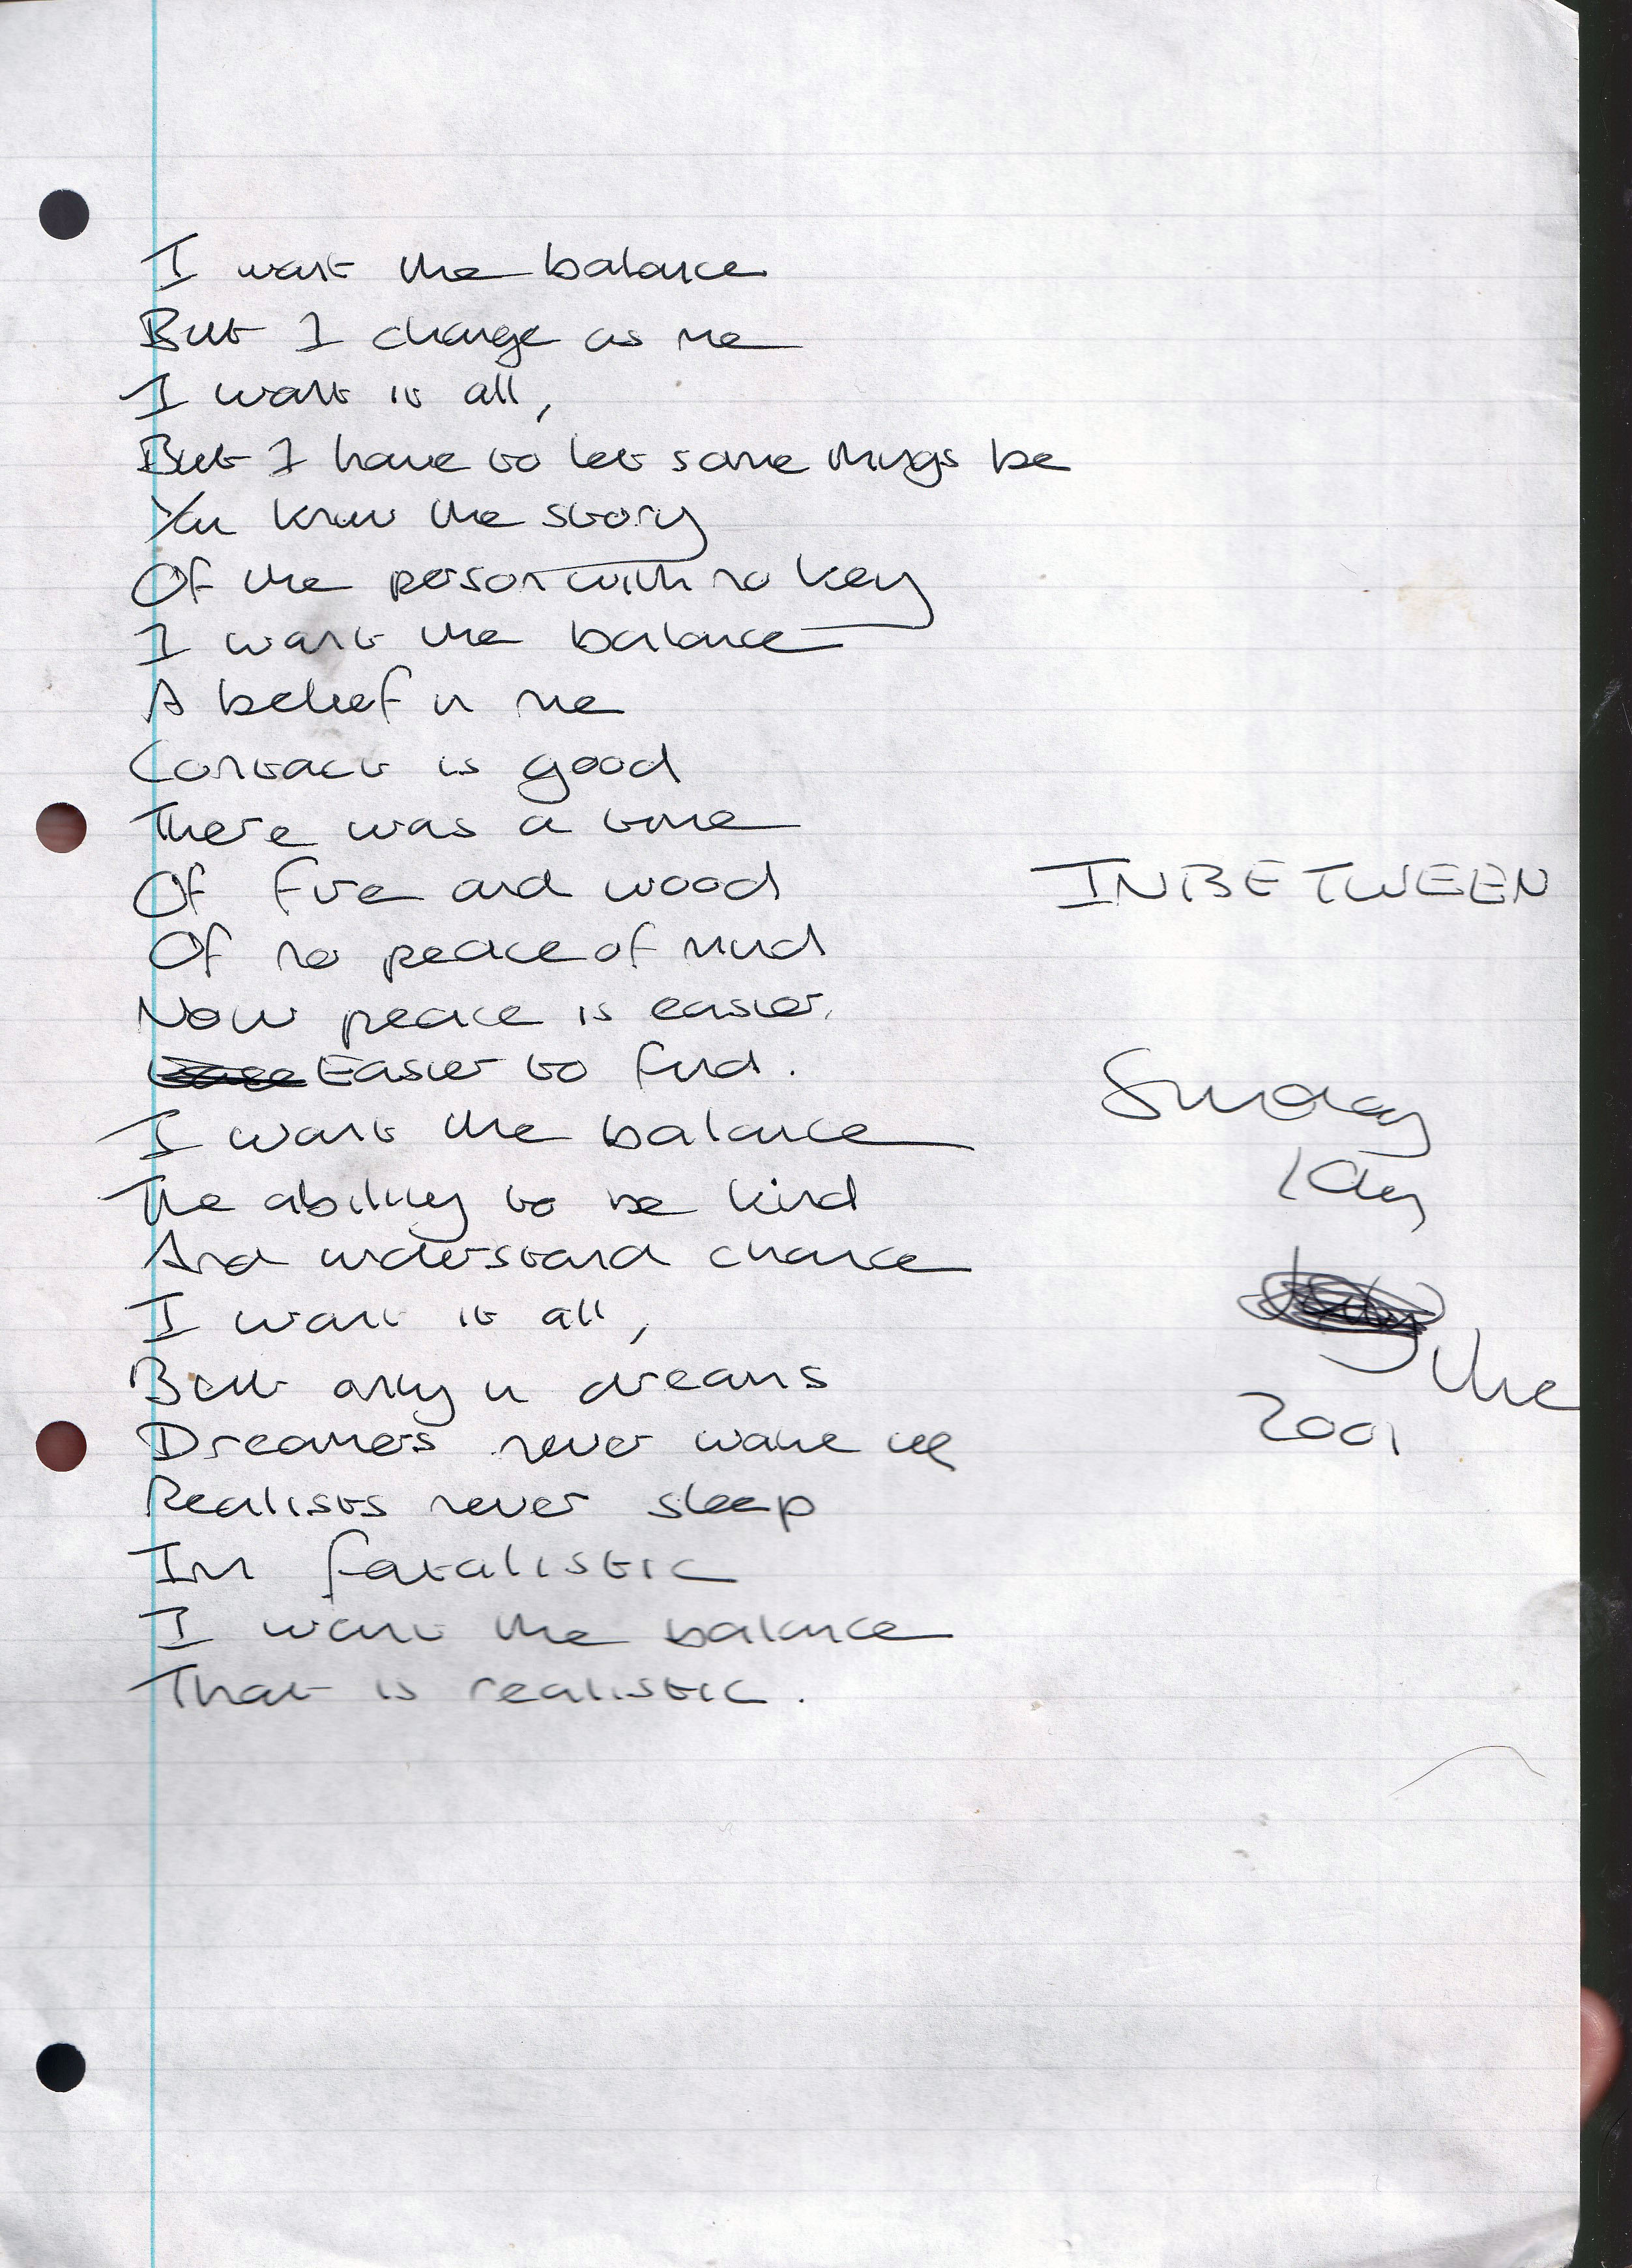 I want the balance
But I change as me
I want it all,
But I have to let some things be
You know the story
Of the person with no key
I want the balance
A belief in me
Contact is good
There was a time
Of fire and wood
Of no peace of mind
Now peace is easier.
Easier to find.
I want the balance
The ability to be kind
And understand chance
I want it all,
But only in dreams
Dreamers never wake up
Realists never sleep
Im fatalistic
I want the balance
That is realistic.
INBETWEEN
Sunday
June
2001